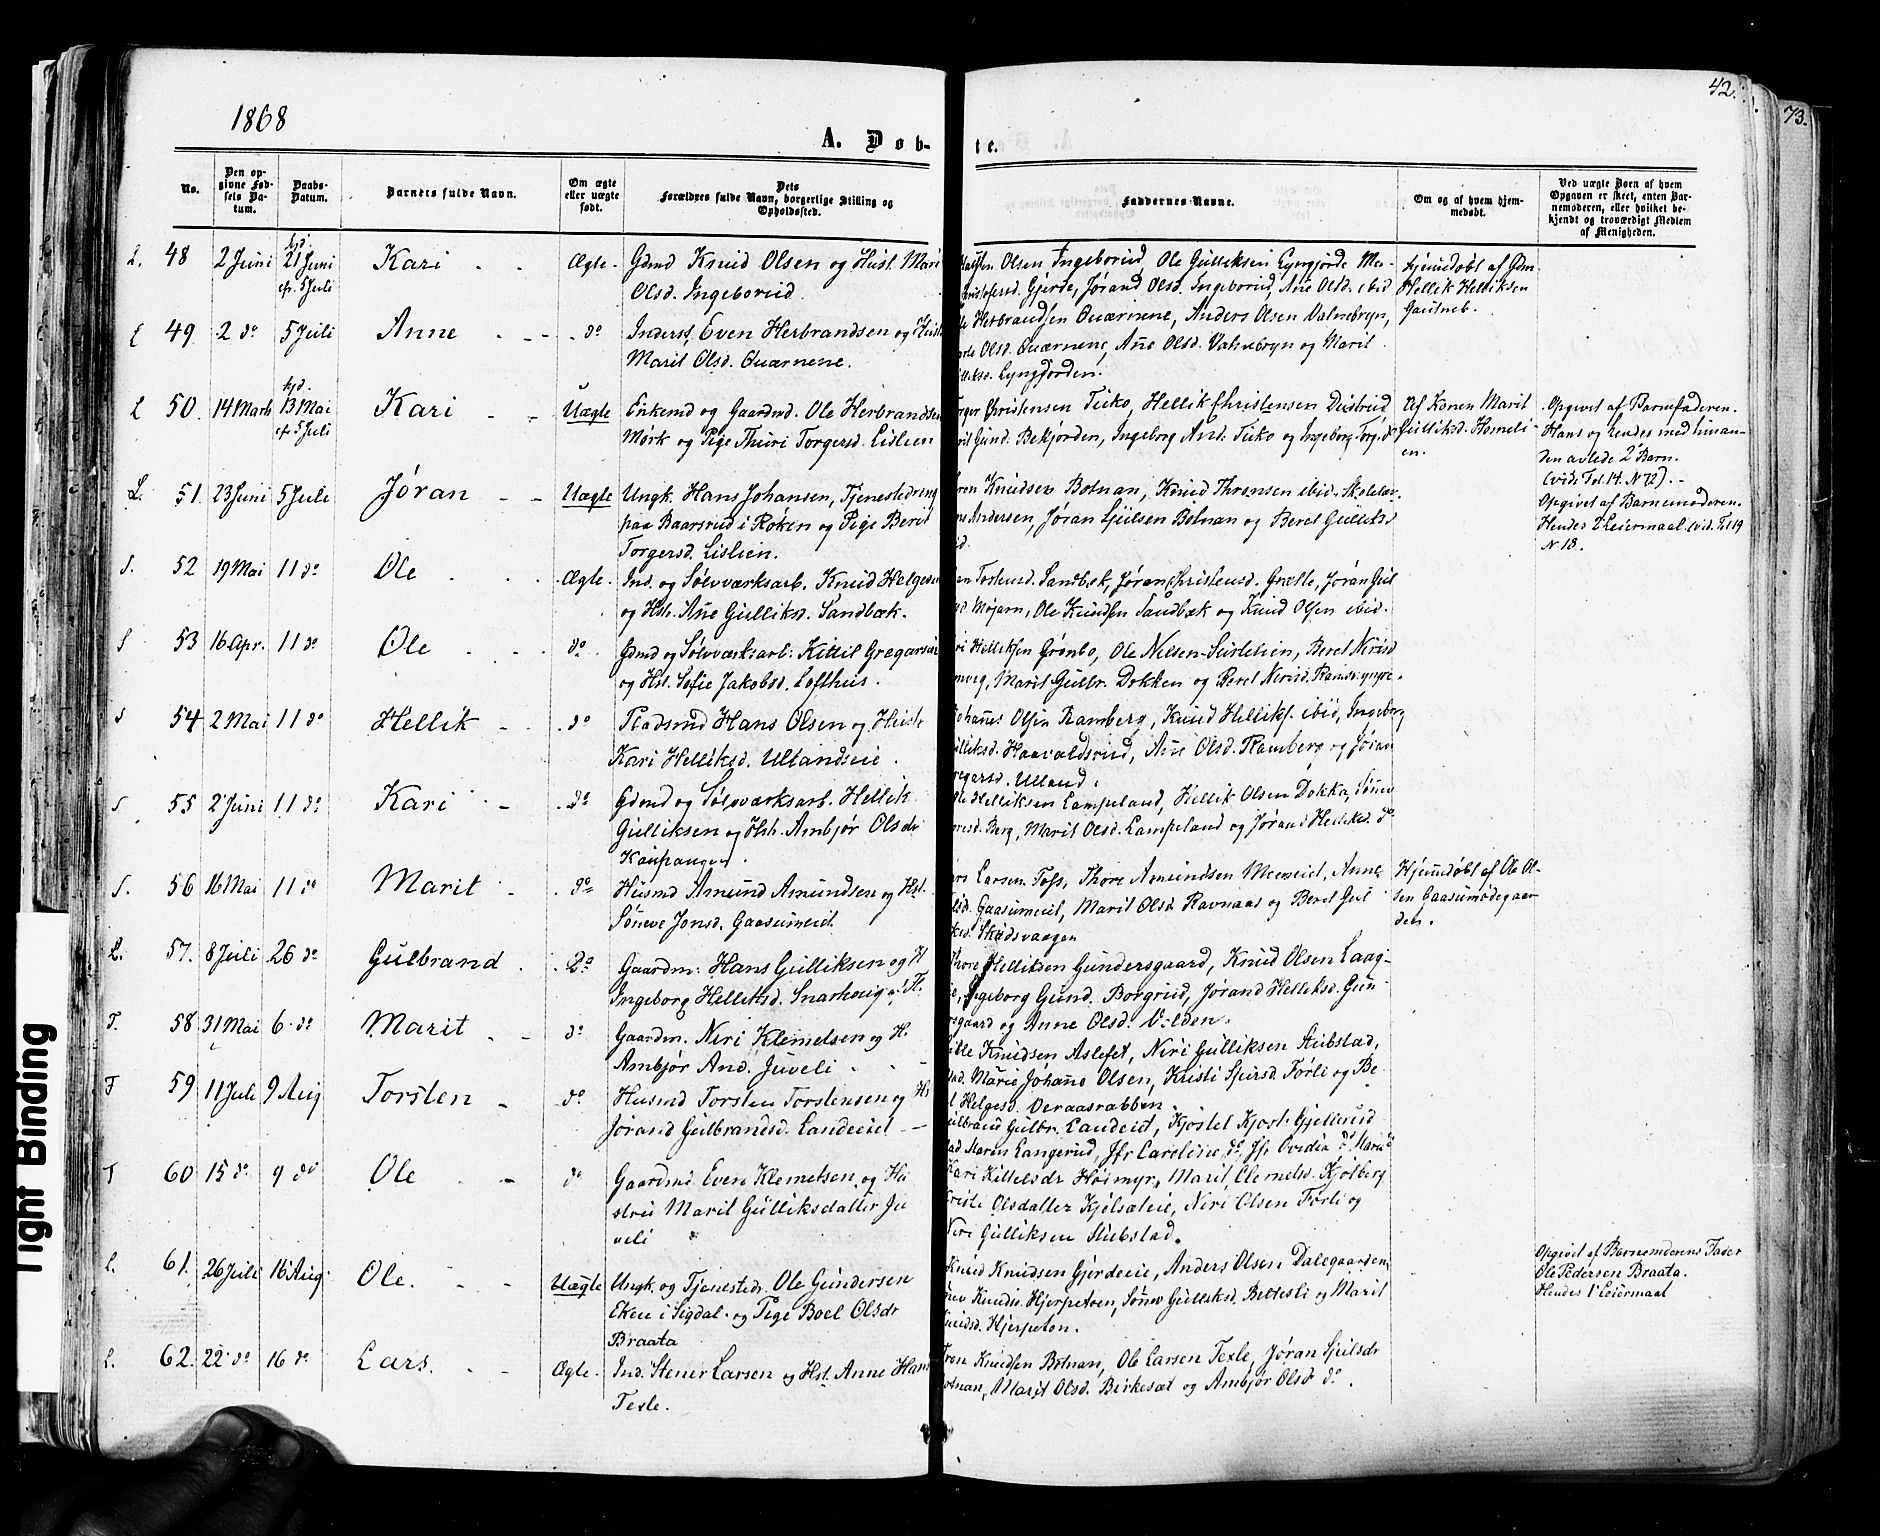 42.
73.
1868
A. Døb-
te.
No.
Den op-
givne Fød-
sels Da-
tum.
Daabs-
Datum.
Barnets fulde Navn.
Om ægte
eller uægte
født.
Dets
Forældres fulde Navn, borgerlige Stilling og
Opholdssted.
Faddernes Navne.
Om og af hvem hjem-
medøbt.
Ved uægte Børn af hvem
Opgaven er skeet, enten Bar-
nemoderen, eller hvilket be-
kjendt og troværdigt Medlem
af Menigheden.
L. 48 2 Juni hjd. 21 Juni cfr. 5 Juli Kari Ægte Gdmd Knud Olsen og Hust. Mari
Olsd. Ingeborud.
Olsen Ingeborud, Ole Gulliksen Lyngjorde
Gjerde, Jørand Olsd. Ingeborud, Ane Olsd. ibid
Hjemdøbt af Gdm.
Hellik Helliksen
49 2 do 5 Juli Anne do Inderst Even Herbrandsen og Hust
Marit Olsd. Quærnene.
Herbrandsen Quærnene, Anders Olsen Valnebryn,
Olsd. Quærnene, Ane Olsd. Valnebryn og Marit
Lyngjorden.
50. 14 Marts hjd. 13 Mai cfr. 5 Juli Kari Uægte Enkemd og Gaardmd. Ole Herbrandsen
Mørk og Pige Thuri Torgersd. Lislien
Christensen Tuko, Hellik Christensen
Gund. Bekjorden, Ingeborg And. Tuko og Ingeborg Torg. do
Af Konen Marit
Gulliksd.
en.
Opgivet af Barnefaderen.
Hans og hendes med hinan-
den avlede 2d Barn.
(vide Fol. 14. N 72).
L. 51. 23 Juni 5 Juli Jøran Uægte Ungk. Hans Johansen, Tjenestedreng
paa Baarsrud i Røken og Pige Berit
Torgersd. Lislien.
Knudsen Botnan, Knud Thronsen ibid. Skolelær.
Andersen, Jøran Sjulsen Botnan og Beret Gulliksd
Opgivet af Barnemoderen.
Hendes 2d Leiermaal (vid. Fol 19
N 18.
S. 52 19 Mai 11 do Ole Ægte Ind. og Sølvværksarb. Knud Helgesen
og Hst. Ane Gulliksd. Sandbæk.
Torstensd. Sandbæk, Jøran Christensd. Grætte, Jøran Gul
Mojarn, Ole Knudsen Sandbæk og Knud Olsen ibid.
S 53 16 Apr. 11 do Ole do Gdmd og Sølvværksarb. Kittil Gregarsen
og Hst. Sofie Jakobsd. Lofthus.
Helliksen Grønbo, Ole Nilsen Surlelien, Beret Nirisd
Marit Gulbr. Dokken og Beret Nirisd.
S 54 2 Mai 11 do Hellik do Pladsmd Hans Olsen og Huste
Kari Helliksd. Ullandseie.
Johanes Olsen Ramberg, Knud Helliks. ibid, Ingeborg
Haavaldsrud, Ane Olsd. Ramberg og Jøran
Ulland.
S 55 2 Juni 11 do Kari do Gdmd og Sølvværksarb. Hellik
Gulliksen og Hst. Ambjør Olsdr
Kaupangen.
Ole Helliksen Lampeland, Hellik Olsen Dokka, Sønev
Berg, Marit Olsd. Lampeland og Jørand Helliksd. do
S. 56 16 Mai 11 do Marit do Husmd Amund Amundsen og Hst.
Søneve Jonsd. Gaasumeid
Larsen Foss, Thore Amundsen Moenseid, Anne
Gaasumeid, Marit Olsd. Ravnaas og Beret Gul
Skodsvaagen
Hjemdøbt af Ole Ol-
sen Gaasumødegaar
den.
L. 57. 8 Juli 26 do Gulbrand do Gaardm: Hans Gulliksen og H
Ingeborg Helliksd. Snarhoug
Thore Helliksen Gundersgaard, Knud Olsen Laag-
Ingeborg Gund. Borgrud, Jørand Helliksd. Gun-
og Anne Olsd. Vilden.
T. 58 31 Mai 6 do Marit do Gaardm. Niri Klemetsen og H.
Ambjør And. Juveli
Knudsen Aslefet, Niri Gulliksen Stubstad,
Marie Johane Olsen, Kristi Sjursd. Førli og Be-
Helgesd.
F 59 11 Juli 9 Aug Torsten do Husmd Torsten Torstensen og Hs
Jørand Gulbrandsd. Landeiet
Gulbr. Landeid, Kjostel Kjost. Gjellerud
Maren Langerud, Jfr Caroline do, Jfr Ovidia do
T 60 15 do 9 do Ole do Gaardmd Even Klemetsen og Hu
stru Marit Gulliksdatter Ju
veli
Kari Kittelsdr Høimyr, Marit Clemetsd. Kjølberg
Olsdatter Kjølsaleie, Niri Olsen Førli og
Niri Gulliksen Stubstad.
L. 61. 26 Juli 16 Aug. Ole. Uægte Ungk. og Tjenestedr. Ole Gundersen
Eken i Sigdal og Pige Boel Olsdr
Braata
Knud Knudsen Gjerdeie, Anders Olsen Dalegaarden,
Knuds. Hjerpetøen, Sønev Gulliksd. Betteli og Marit
Hjerpeton.
Opgivet af Barnemderens Fader
Ole Pedersen Braata.
Hendes 1t Leiermaal
L. 62. 22 do 16 do Lars. Ægte Ind. Stener Larsen og Hst. Anne Hans
Texle.
Tron Knudsen Botnan, Ole Larsen Texle, Jøran Sjulsdr
Botnan, Marit Olsd. Birkesæt og Ambjør Olsd do.
Tight Binding